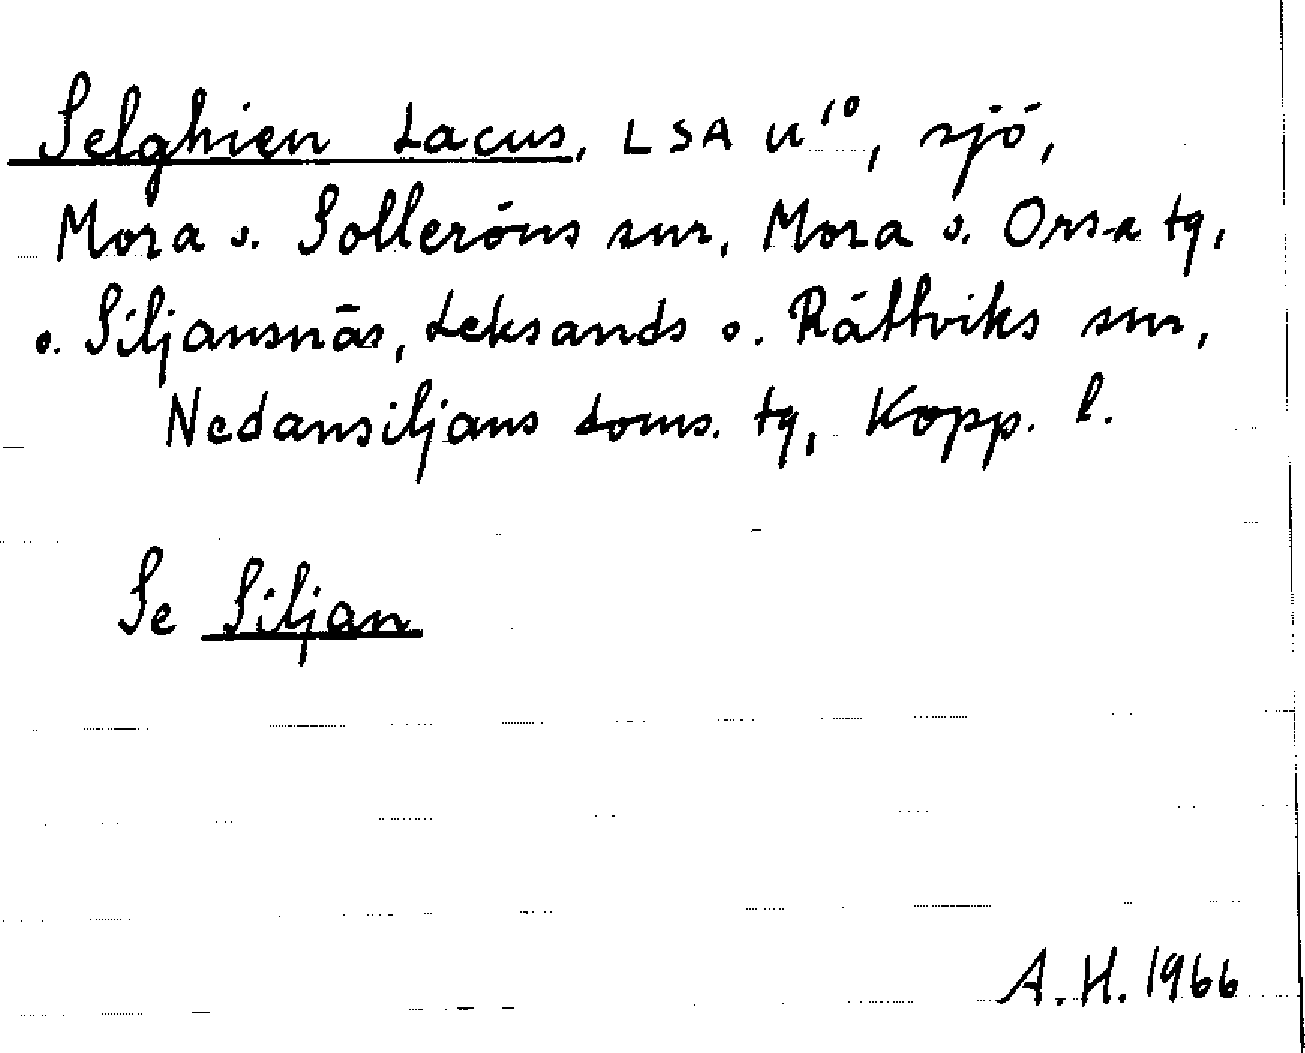 Selghien Lacus, LSA u¹⁰, sjö,
Mora o. Solleröns snr, Mora o. Orsa tg,
o. Siljansnäs, Leksands o. Rättviks snr,
Nedansiljans doms. tg, Kopp. l.
Se Siljan
A.H. 1966